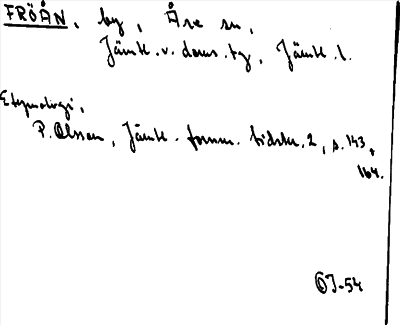 FRÖÅN, by, Åre sn,
Jämtl. v. doms. tg, Jämtl. l.
Etymologi,
P. Olsson, Jämtl. fornm. tidskr. 2, s. 143,
164.
OJ-54